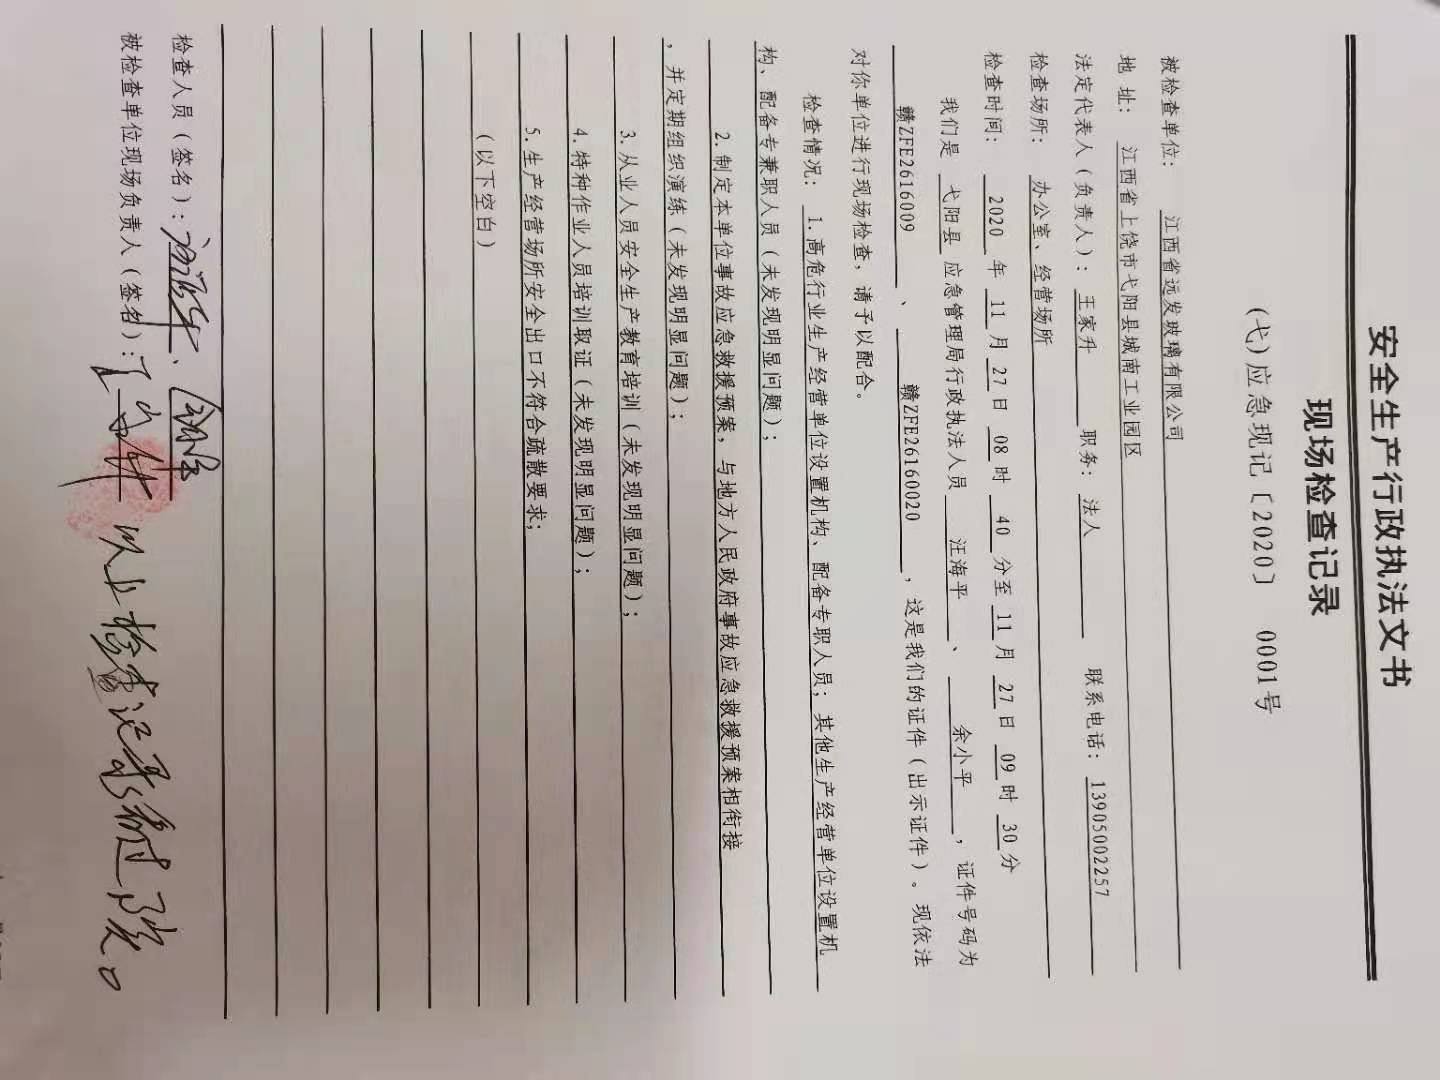 安全生产行政执法文书
现场检查记录
(弋)应急现记〔2020〕 0001号
被检查单位: 江西省远发玻璃有限公司
地 址: 江西省上饶市弋阳县城南工业园区
法定代表人(负责人): 王家升 职务: 法人 联系电话: 13905002257
检查场所: 办公室、经营场所
检查时间: 2020 年 11 月 27 日 08 时 40 分至 11 月 27 日 09 时 30 分
我们是 弋阳县 应急管理局行政执法人员 汪海平 、 余小平 , 证件号码为
赣ZFE2616009 、 赣ZFE26160020 , 这是我们的证件(出示证件)。现依法
对你单位进行现场检查, 请予以配合。
检查情况: 1.高危行业生产经营单位设置机构、配备专职人员; 其他生产经营单位设置机
构、配备专兼职人员(未发现明显问题);
2.制定本单位事故应急救援预案, 与地方人民政府事故应急救援预案相衔接
, 并定期组织演练(未发现明显问题);
3.从业人员安全生产教育培训(未发现明显问题);
4.特种作业人员培训取证(未发现明显问题);
5.生产经营场所安全出口不符合疏散要求;
(以下空白)
检查人员(签名):、
被检查单位现场负责人(签名): 王家升 以上检查记录属实。